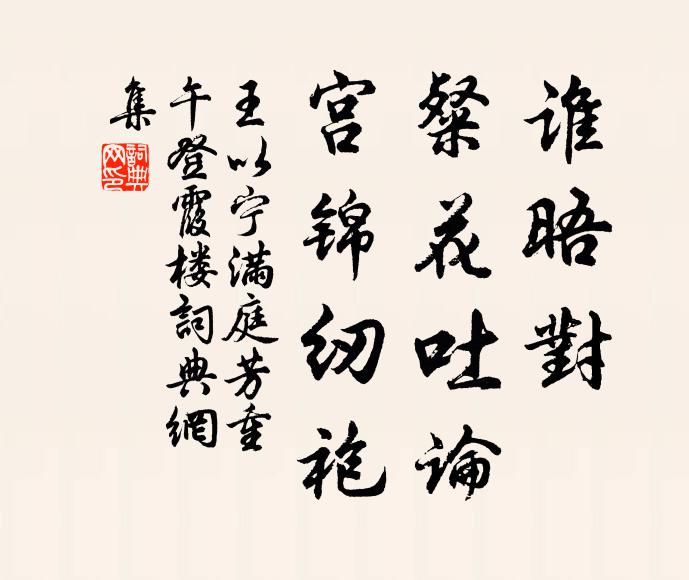 谁晤對
粲花吐論
宫锦纫袍
王以宁满庭芳重
午登霞楼詞典網
集
詞典網印